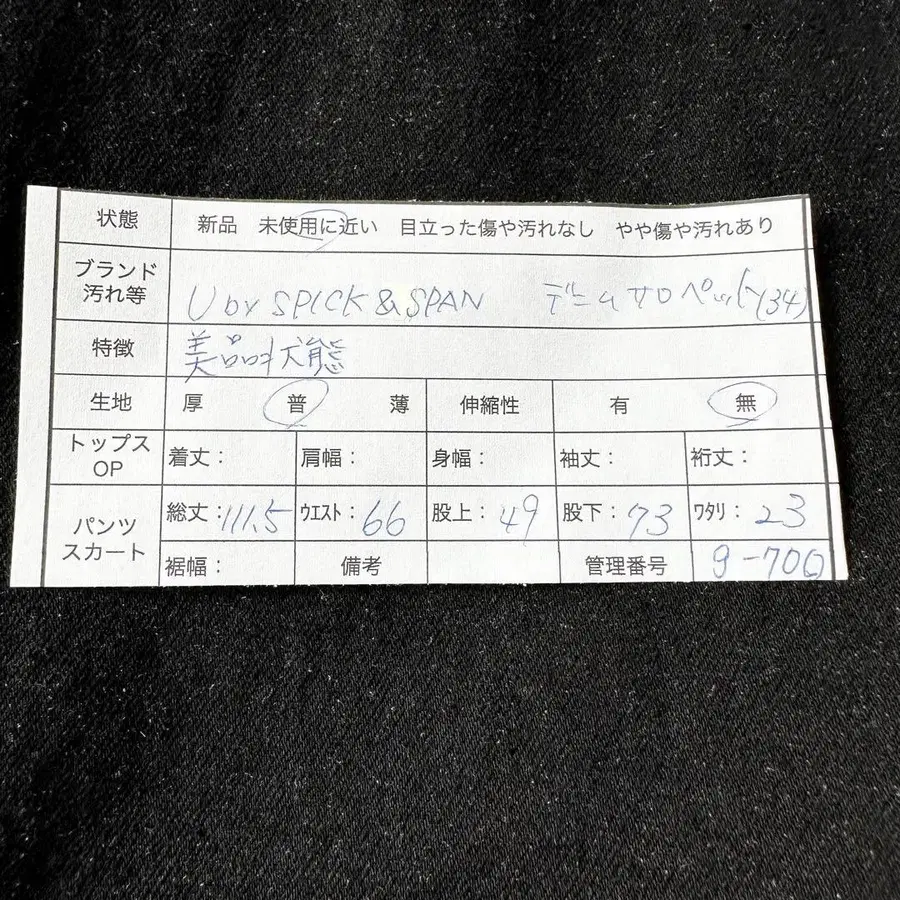 状態 新品 未使用に近い 目立った傷や汚れなし やや傷や汚れあり
ブランド
汚れ等 U by SPICK & SPAN デニムサロペット(34)
特徴 美品状態
生地 厚 普 薄 伸縮性 有 無
トップス
OP 着丈: 肩幅: 身幅: 袖丈: 裄丈:
パンツ
スカート 総丈:111.5 ウエスト:66 股上:49 股下:73 ワタリ:23
裾幅: 備考 管理番号 9-700